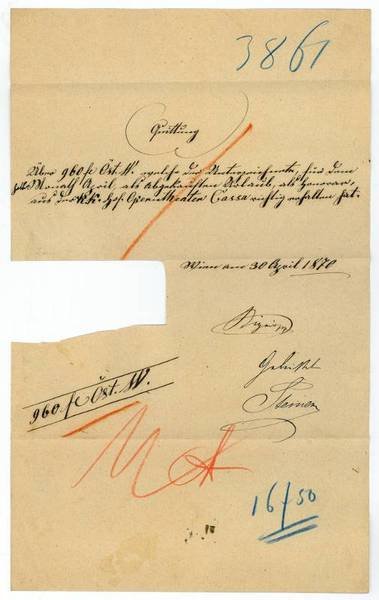 3861
Quittung
Über 960 f Öst. W. welche der Unterzeichnete, für den
Monath April, als abgekauften Urlaub, als Honorar,
aus der K.K. Hof. Operntheater Cassa richtig erhalten hat.
Wien am 30 April 1870
960 f Öst. W.
16/50